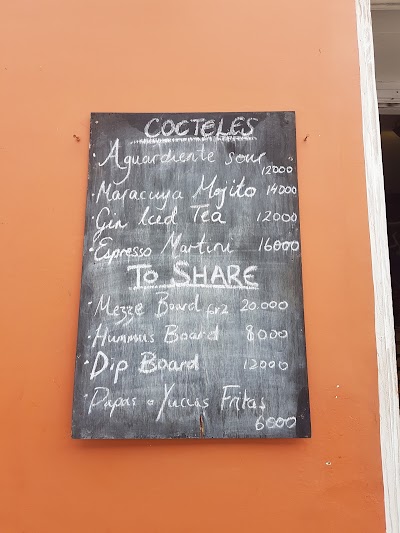 COCTELES
· Aguardiente sour
12000
· Maracuya Mojito 14000
· Gin Iced Tea 12000
· Espresso Martini 16000
TO SHARE
· Mezze Board for 2 20.000
· Hummus Board 8000
· Dip Board 12000
· Papas o Yuccas Fritas
6000